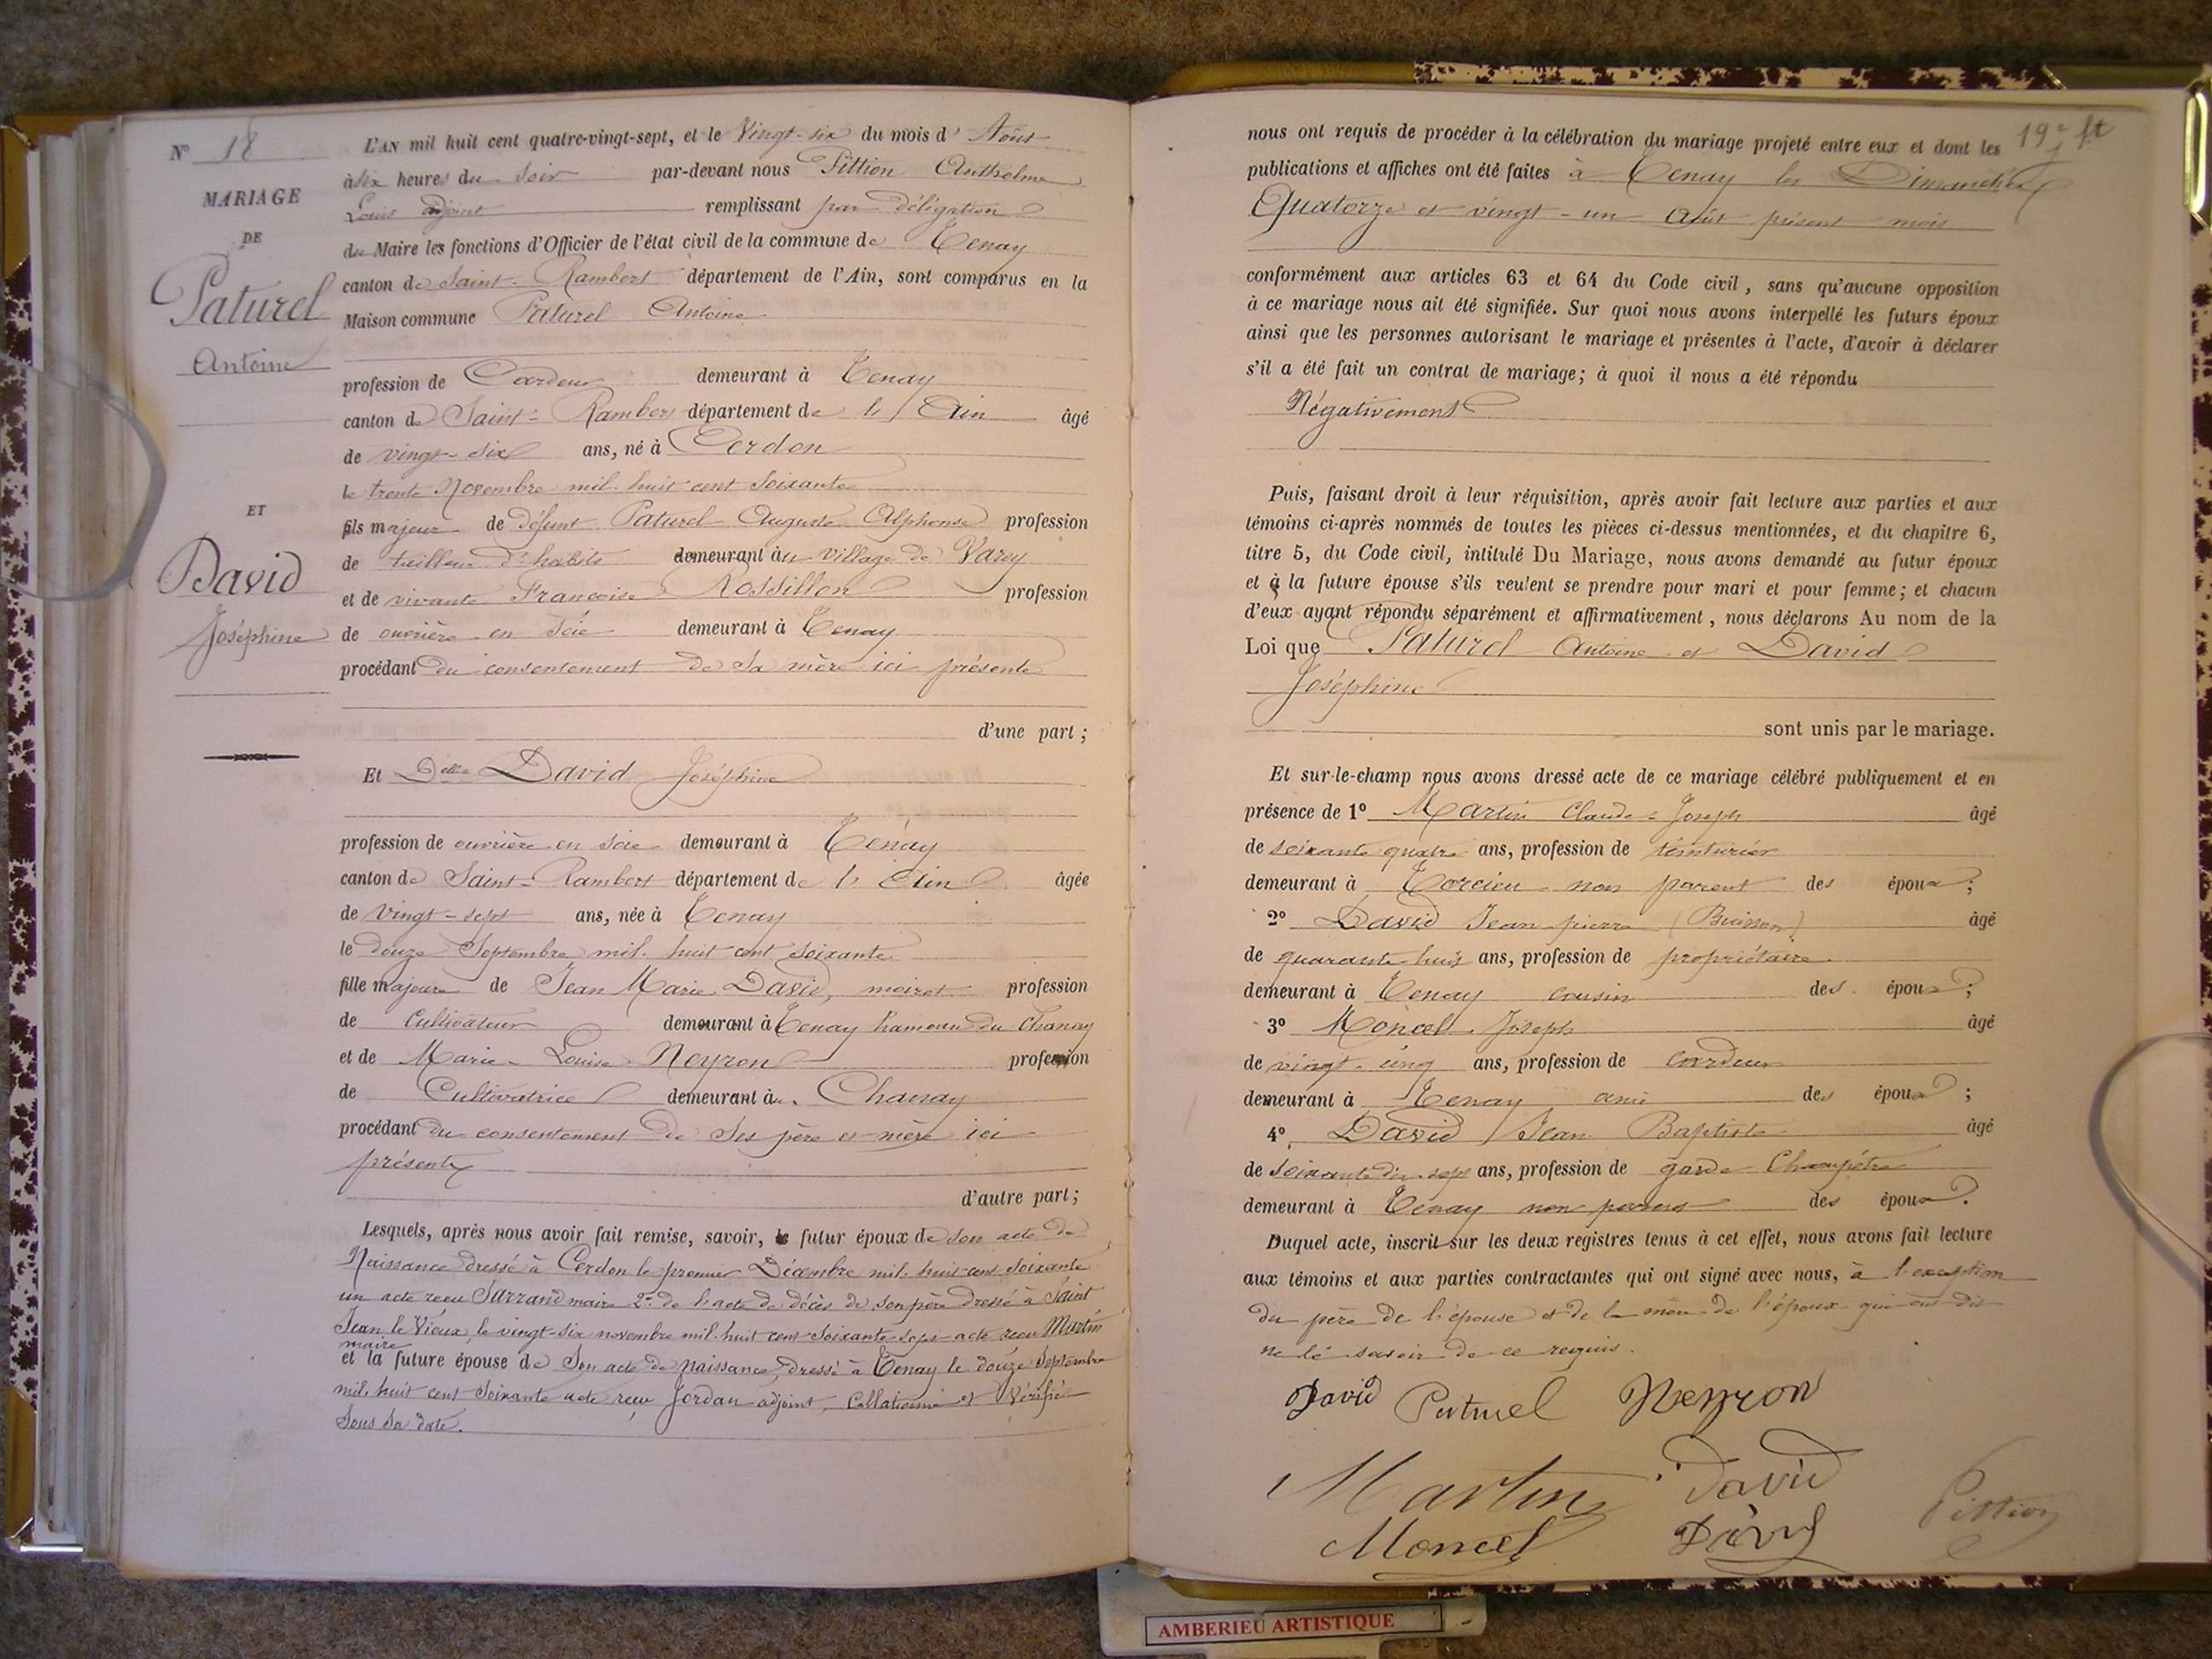 N° 18
MARIAGE
DE
Paturel
Antoine
ET
David
Joséphine
L'AN mil huit cent quatre-vingt-sept, et le Vingt-six du mois d' Août
à six heures du Soir par-devant nous Pittion Anthelme
Louis adjoint remplissant par déligation
du Maire les fonctions d'Officier de l'état civil de la commune de Tenay
canton de Saint-Rambert département de l'Ain, sont comparus en la
Maison commune Paturel Antoine
profession de Cardeur demeurant à Tenay
canton de Saint-Rambert département de l'Ain âgé
de vingt-six ans, né à Cerdon
le trente Novembre mil huit cent Soixante
fils majeur de défunt Paturel Auguste Alphonse profession
de tailleur d'habits demeurant au village de Varey
et de vivante Francoise Rossillon profession
de ouvrière en Soie demeurant à Tenay
procédant du consentement de Sa mère ici présente
d'une part ;
Et Delle David Joséphine
profession de ouvrière en soie demeurant à Tenay
canton de Saint-Rambert département de l'Ain âgée
de Vingt-sept ans, née à Tenay
le douze Septembre mil huit cent soixante
fille majeure de Jean Marie David, moiret profession
de Cultivateur demeurant à Tenay hameau du Chanay
et de Marie-Louise Neyron profession
de Cultivatrice demeurant à Chanay
procédant du consentement de Ses père et mère ici
présents
d'autre part ;
Lesquels, après nous avoir fait remise, savoir, le futur époux de son acte de
Naissance dressé à Cerdon le premier Décembre mil huit cent Soixante
un acte recu Sarrand maire 2° de l'acte de décès de son père dressé à Saint
Jean le Vieux, le vingt-six novembre mil huit cent Soixante sept acte recu Martin
maire
et la future épouse de Son acte de naissance, dressé à Tenay le douze Septembre
mil huit cent Soixante acte recu Jordan adjoint. Collationné et Vérifié
Sous Sa date.
19e ft
nous ont requis de procéder à la célébration du mariage projeté entre eux et dont les
publications et affiches ont été faites à Tenay les Dimanches
Quatorze et vingt-un Août présent mois
conformément aux articles 63 et 64 du Code civil, sans qu'aucune opposition
à ce mariage nous ait été signifiée. Sur quoi nous avons interpellé les futurs époux
ainsi que les personnes autorisant le mariage et présentes à l'acte, d'avoir à déclarer
s'il a été fait un contrat de mariage ; à quoi il nous a été répondu
Négativement
Puis, faisant droit à leur réquisition, après avoir fait lecture aux parties et aux
témoins ci-après nommés de toutes les pièces ci-dessus mentionnées, et du chapitre 6,
titre 5, du Code civil, intitulé Du Mariage, nous avons demandé au futur époux
et à la future épouse s'ils veulent se prendre pour mari et pour femme ; et chacun
d'eux ayant répondu séparément et affirmativement, nous déclarons Au nom de la
Loi que Paturel Antoine et David
Joséphine
sont unis par le mariage.
Et sur-le-champ nous avons dressé acte de ce mariage célébré publiquement et en
présence de 1° Martin Claude-Joseph âgé
de soixante quatre ans, profession de teinturier
demeurant à Torcieu non parent des époux ;
2° David Jean pierre (Buisson) âgé
de quarante huit ans, profession de propriétaire
demeurant à Tenay cousin des époux ;
3° Moncel Joseph âgé
de vingt-cinq ans, profession de cardeur
demeurant à Tenay ami des époux ;
4° David Jean Baptiste âgé
de soixante dix-sept ans, profession de garde Champêtre
demeurant à Tenay non parent des époux.
Duquel acte, inscrit sur les deux registres tenus à cet effet, nous avons fait lecture
aux témoins et aux parties contractantes qui ont signé avec nous, à l'exception
du père de l'épouse et de la mère de l'époux qui ont dit
ne le savoir de ce requis.
David Paturel Neyron
Martin David
Moncel David Pittion
AMBERIEU ARTISTIQUE